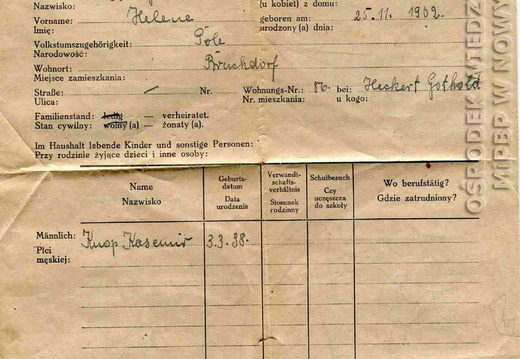 Nazwisko: (u kobiet) z domu:
Vorname: Helene geboren am: 25. 11. 1902.
Imię: urodzony (a) dnia:
Volkstumszugehörigkeit: Pole
Narodowość:
Wohnort: Bruchdorf
Miejsce zamieszkania:
Straße: / Nr. Wohnungs-Nr.: bei: Heckert Gothold
Ulica: Nr. mieszkania: u kogo:
Familienstand: ledig — verheiratet.
Stan cywilny: wolny (a) — żonaty (a).
Im Haushalt lebende Kinder und sonstige Personen:
Przy rodzinie żyjące dzieci i inne osoby:
Name
Nazwisko
Geburts-
datum
Data
urodzenia
Verwandt-
schafts-
verhältnis
Stosunek
rodzinny
Schulbesuch
Czy
uczęszcza
do szkoły
Wo berufstätig?
Gdzie zatrudniony?
Männlich: Knop Kasemir 3. 3. 38.
Płci
męskiej:
OŚRODEK MIEDZ
MIPBP W NOWY